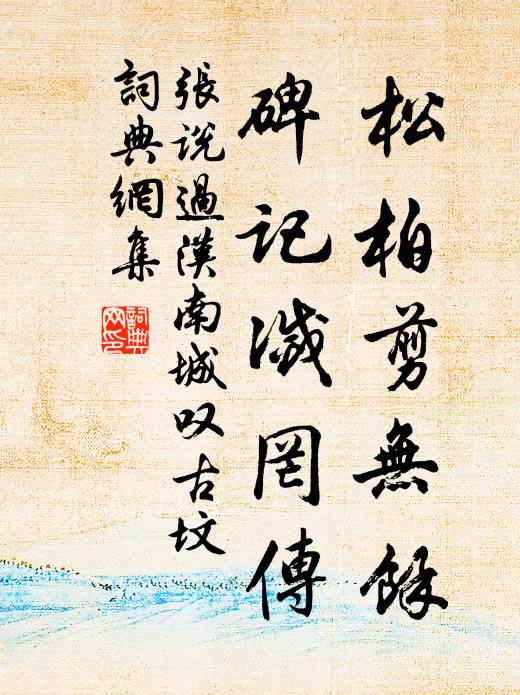 松柏剪無餘
碑記滅罔傳
張说過漢南城叹古坟
詞典網集
詞典網印